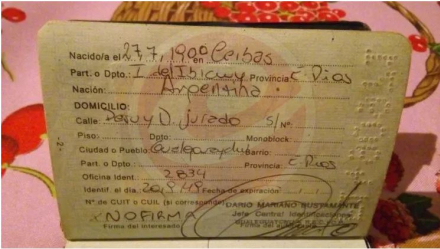 Nacido/a el 27,7,1900 en Ceibas
Part. o Dpto.: I del Ibicuy Provincia E. Rios
Nación: Argentina
DOMICILIO:
Calle: D. Jurado S/Nº:
Piso: Dpto: Monoblock:
Ciudad o Pueblo: Gualeguaychu Barrio:
Part. o Dpto Provincia: E. Rios
Oficina Ident. 2834
Identif. el día Fecha de expiración
Nº de CUIT o CUIL (si corresponde) DARIO MARIANO BUSTAMANTE
NO FIRMA Jefe Central Identificaciones
Firma del interesado Firma del